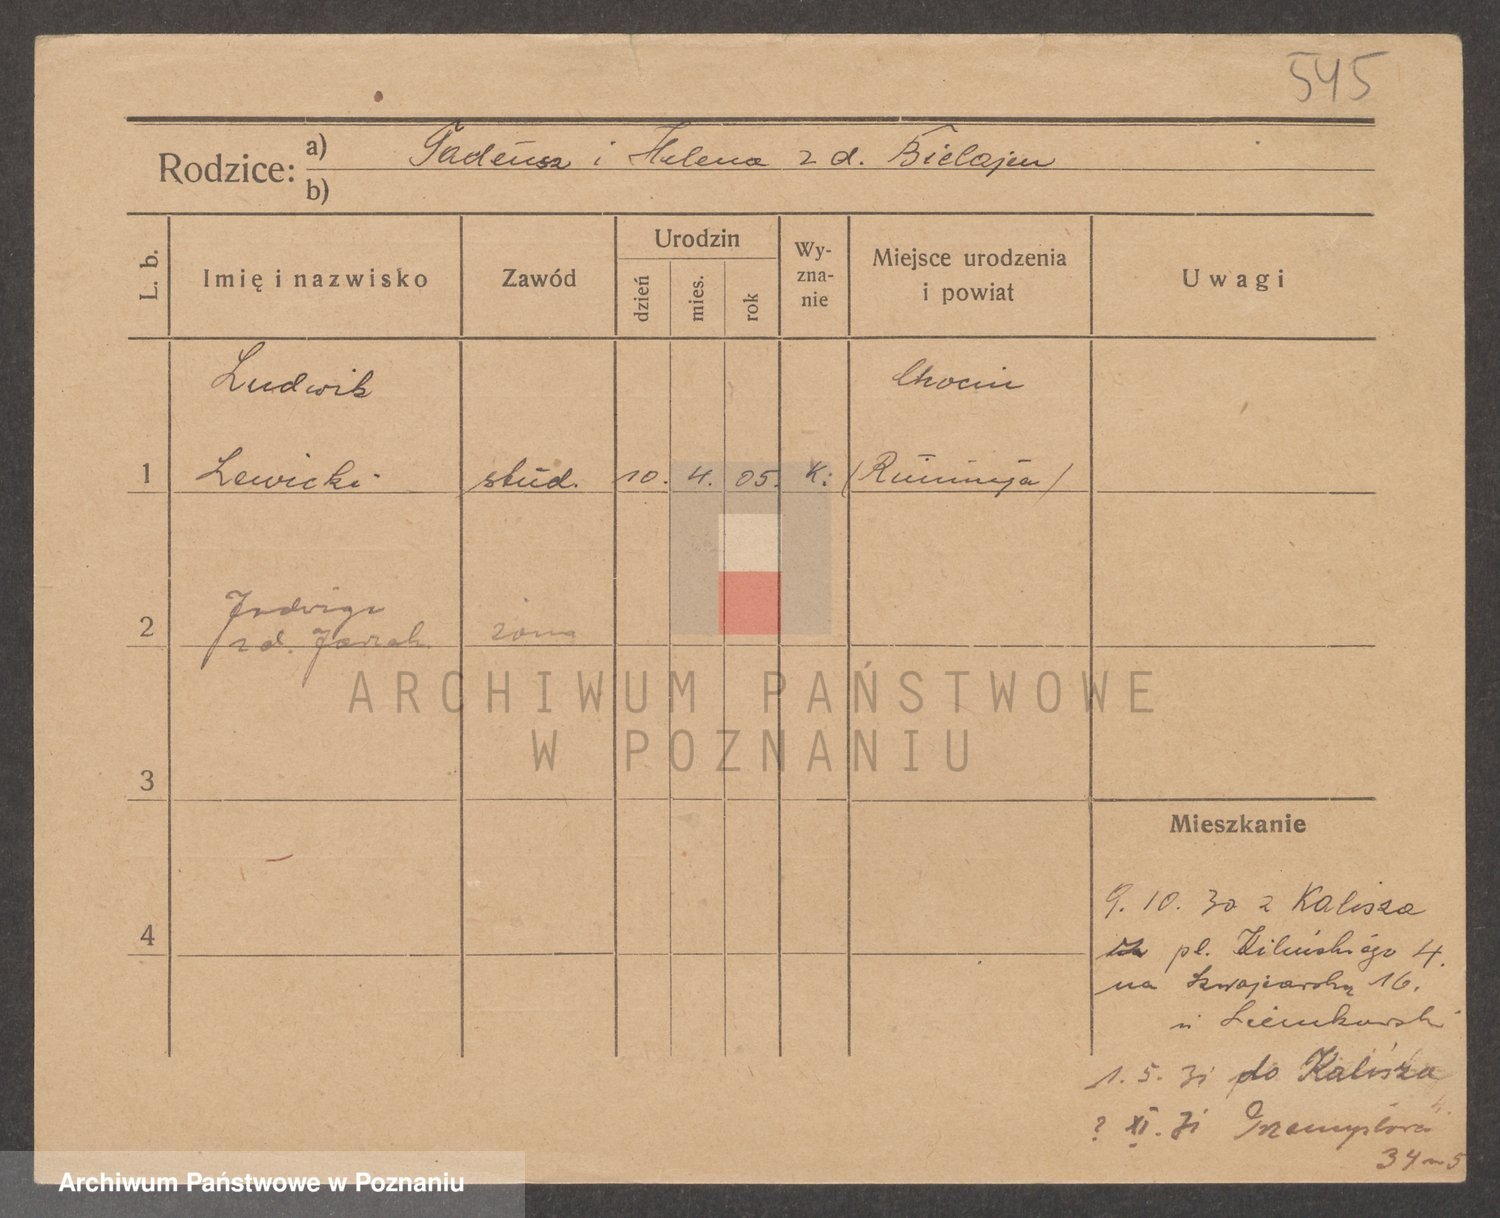 545
Rodzice: a) Tadeusz i Helena z d. Bielajew
b)
L. b. Imię i nazwisko Zawód Urodzin dzień mies. rok Wy-zna-nie Miejsce urodzenia i powiat Uwagi
Ludwik Chocin
1 Lewicki stud. 10. 4. 05. K. (Rumunja)
Jadwiga
2 z d. żona
ARCHIWUM PAŃSTWOWE
W POZNANIU
3
Mieszkanie
4
9. 10. 30 z Kalisza
pl. Kilińskiego 4.
na 16.
u
1. 5. 31 do Kalisza
XI. 31 Przemysłowa
34 m 5
Archiwum Państwowe w Poznaniu